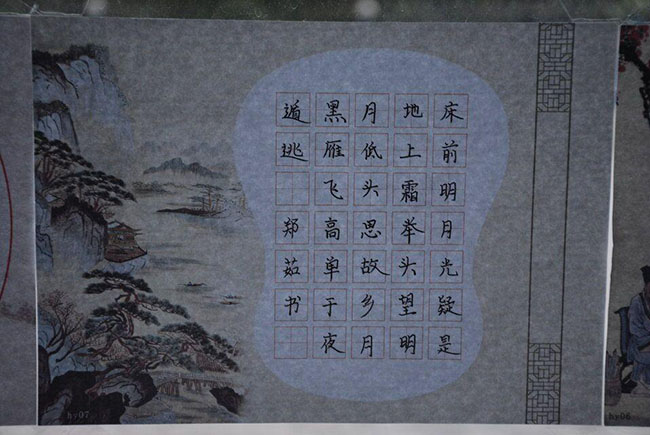 床前明月光疑是
地上霜举头望明
月低头思故乡月
黑雁飞高单于夜
遁逃 郑茹书
hy07
hy06